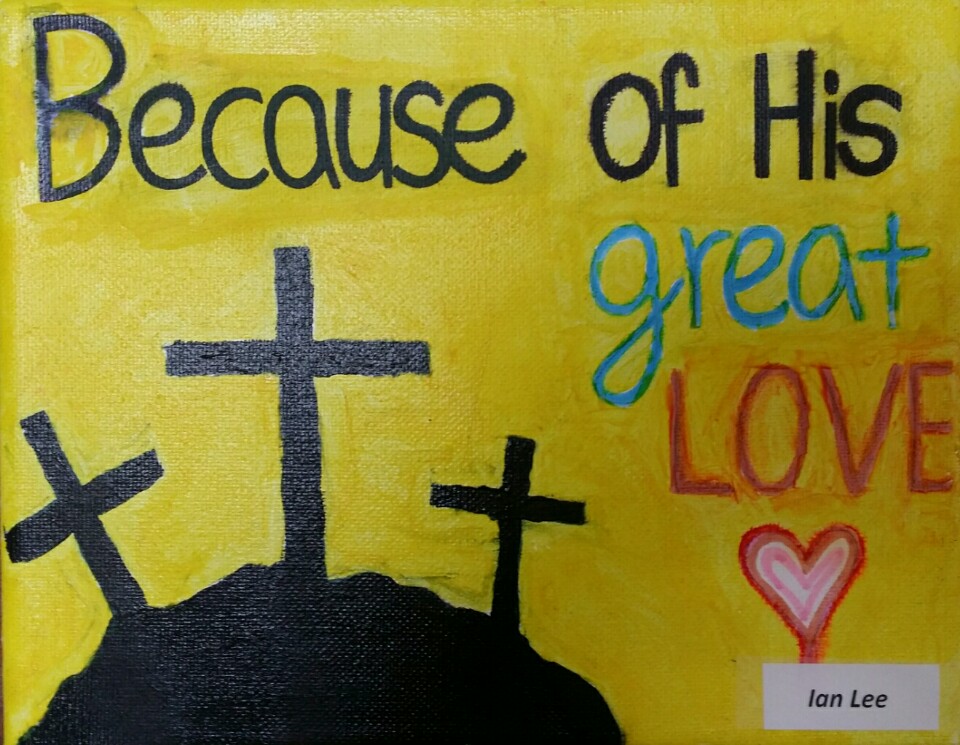 Because of His
great
LOVE
Ian Lee